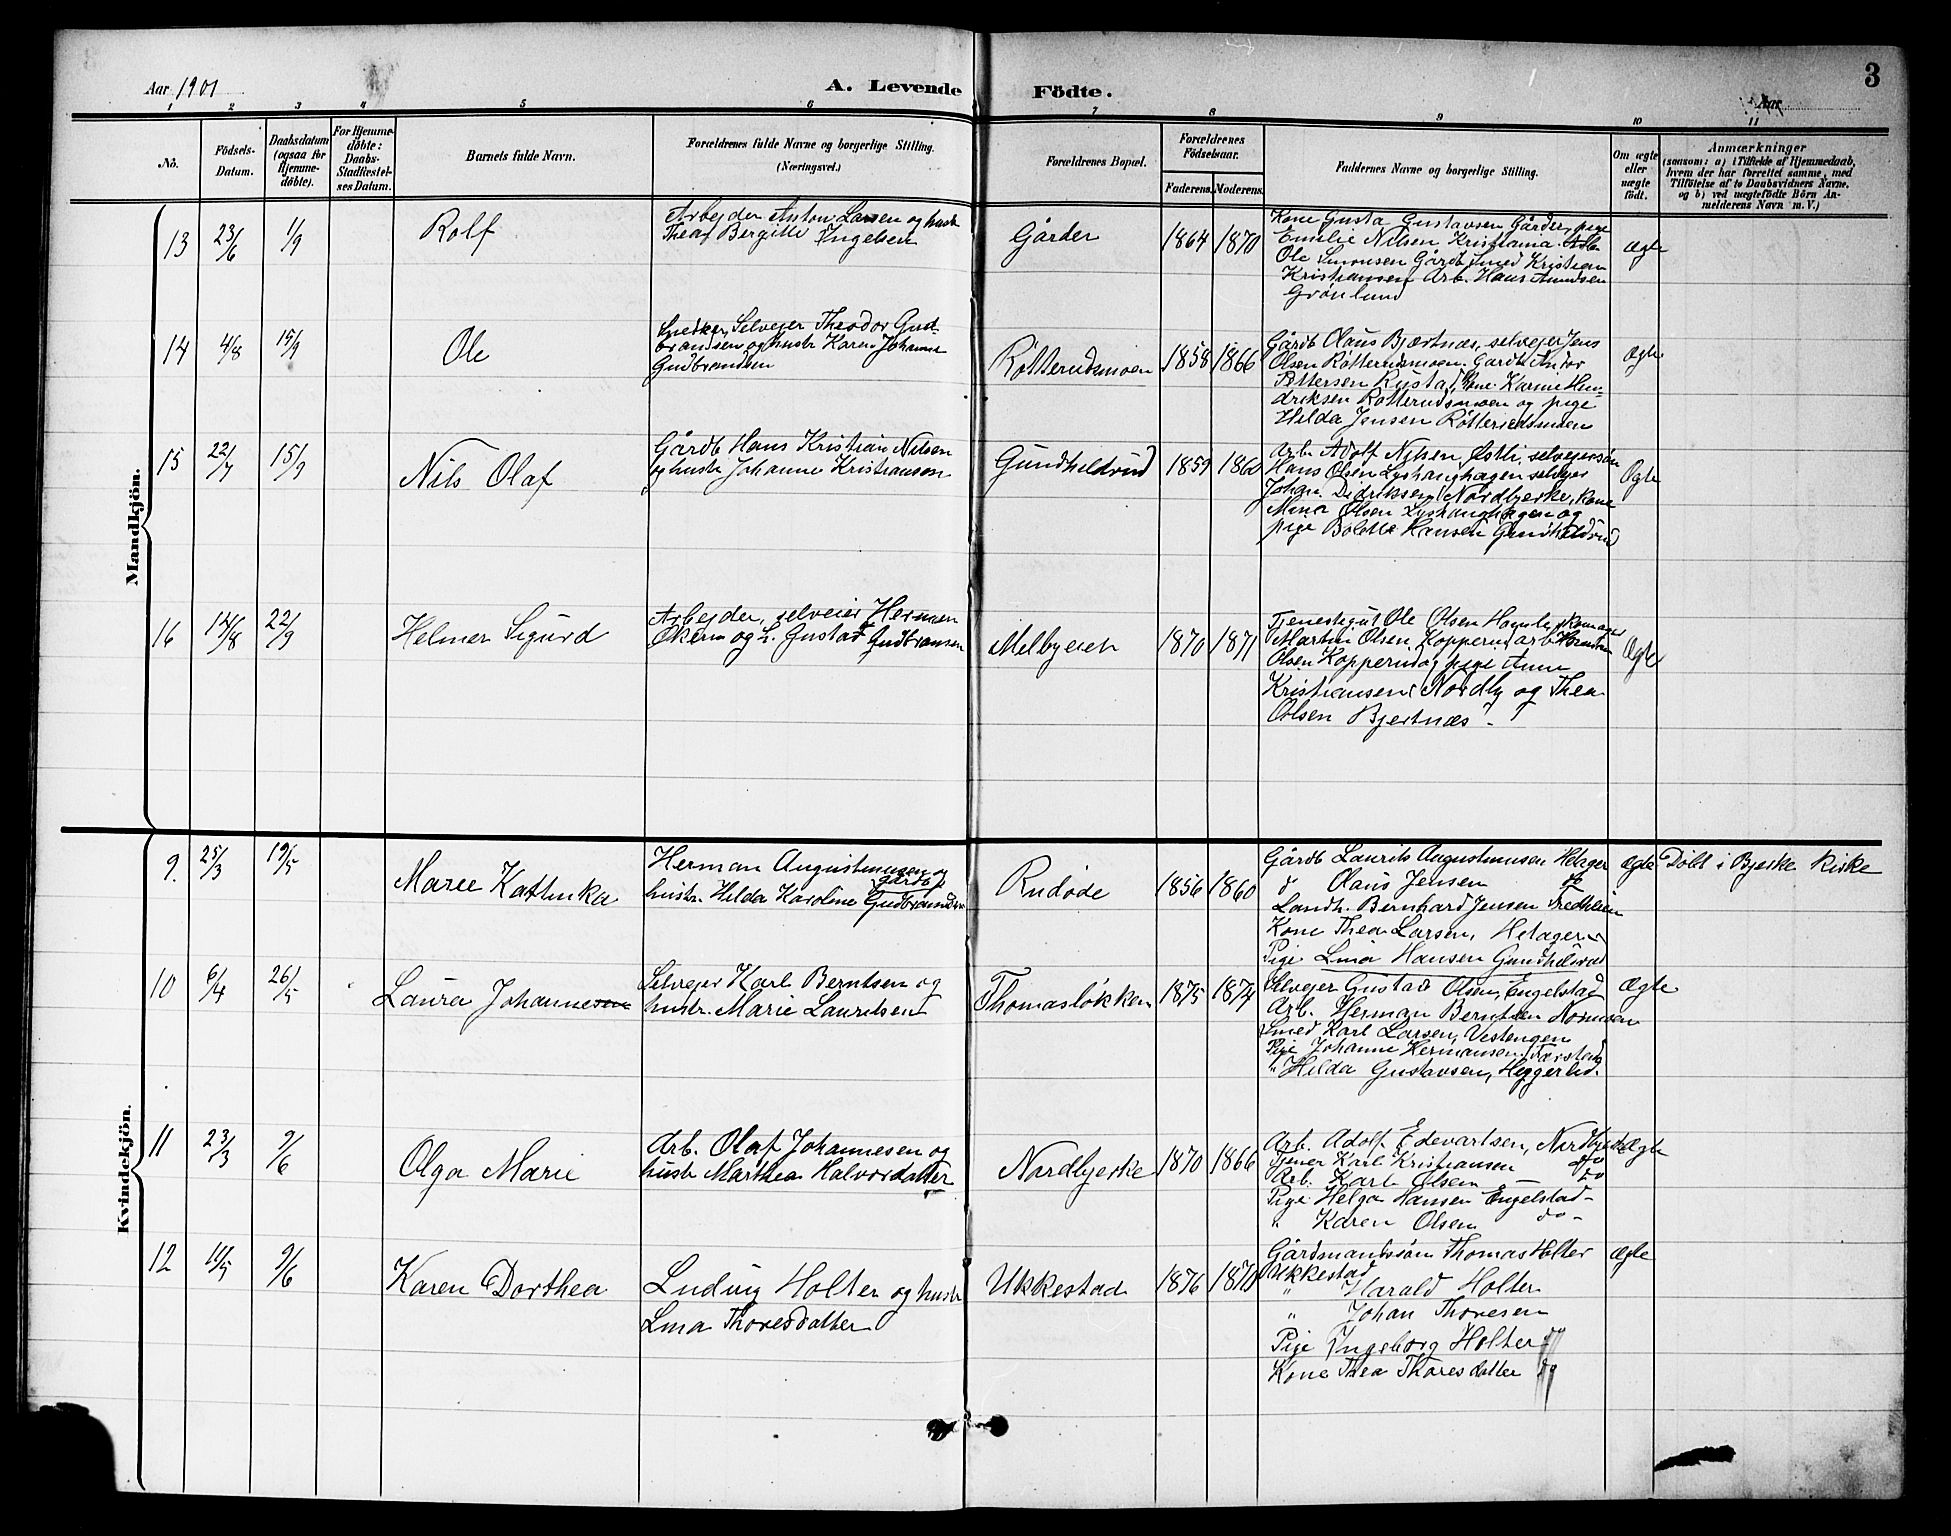 Aar 1901
A. Levende Födte.
3
Aar
1 2 3 4 5 6 7 8 9 10 11
No.
Födsels-Datum.
Daabsdatum (ogsaa for Hjemme-döbte).
For Hjemme-döbte: Daabs-Stadfæstel-ses Datum.
Barnets fulde Navn.
Forældrenes fulde Navne og borgerlige Stilling. (Næringsvei.)
Forældrenes Bopæl.
Forældrenes Födselsaar.
Faderens. Moderens.
Faddernes Navne og borgerlige Stilling.
Om ægte eller uægte födt.
Anmærkninger
(saasom: a) i Tilfælde af Hjemmedaab,
hvem der har forrettet samme, med
Tilföielse af to Daabsvidners Navne,
og b) ved uægtefödte Börn An-
melderens Navn m. V.)
Mandkjön.
13 23/6 1/9 Rolf
Arbejder Anton Larsen og hustr
Thea Bergitte Ingelsen
Gårder 1864 1870
Kone Gusta Gustavsen Gårder, pige
Emilie Nilsen Kristiania. Arb.
Ole Simonsen Gårdb Smed Kristian
Kristiansen Arb. Hans Amundsen
Grönlund
ægte
14 4/8 15/9 Ole
Snedker, Selvejer Theodor Gud-
brandsen og hustr Karen Johanne
Gudbrandsen
Rötterudsmoen 1858 1866
Gårdb Olaus Bjærtnæs, selvejer Jens
Olsen Røtterudsmoen. Gardb Antor
Pettersen Rustad, Kone Karine Hen-
driksen Rotterudsmoen og pige
Hilda Jensen Rötterudsmoen
Ægte
15 22/7 15/9 Nils Olaf
Gårdb Hans Kristian Nilsen
og hustr Johanne Kristianson
Gundheldrud 1859 1860
Arb. Adolf Nilsen, Østli, selvejersøn
Hans Olsen Lyshaughagen selvejer
Johan Dedriksen Nordbjerke, kone
Mina Olsen Lyshaughagen og
pige Bolette Hansen Gundheldrud
Ægte
16 14/8 22/9 Helmer Sigurd
Arbejder, selveier Herman
Økern og h. Gustaf Gudbransen
Melbyeieh 1870 1871
Tjenestegut Ole Olsen
Martin Olsen, Kopperud, arb
Olsen Kopperud og pige Anne
Kristiansen Nordby og Thea
Olsen Bjertnæs
Ægte
Kvindekjön.
9. 25/3 19/5 Marie Kathinka
Herman Augustinusen og
gårdb
hustr. Hilda Karoline Gudbrandsen
Rudøde 1856 1860
Gårdb Laurits Augustinusen Helager
d Olaus Jensen do
Landh. Bernhard Jensen Fredheim
Kone Thea Larsen, Helager
Pige Lina Hansen Gundhelsrud
ægte
Döbt i Bjerke Kirke
10 6/4 26/5 Laura Johannesen
Selvejer Karl Berntsen og
hustr. Marie Lauritsen
Thomasløkken 1875 1874
Selvejer Gustav Olsen, Engelstad
Arb. Herman Berntsen
Smed Karl Larsen, Vestengen
Pige Johanne Hermansen
" Hilda Gustavsen, Heggerlid.
Ægte
11 23/3 9/6 Olga Marie
Arb. Olaf Johannesen og
hustr Marthea Halvordatter
Nordbjerke 1870 1866
Arb. Adolf Edevartsen, Nordbjerke
Tjener Karl Kristiansen do
Arb. Karl Olsen do
Pige Helga Hansen Engelstad
" Karen Olsen do -
ægte
12 14/5 9/6 Karen Dorthea
Ludvig Holter og hustr
Lina Thoresdatter
Ukkestad 1876 1870
Gårdmandssøn Thomas Holter
Ukkestad
" Harald Holter
" Johan Thoresen
Pige Ingeborg Holter do
Kone Thea Thoresdatter do
ægte